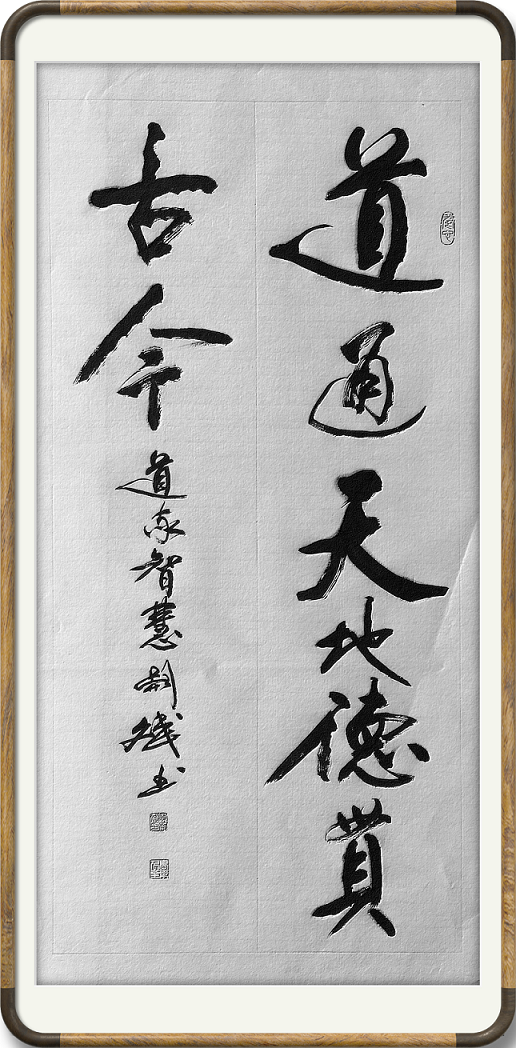 道通天地德貫
古今
道家智慧
斌书